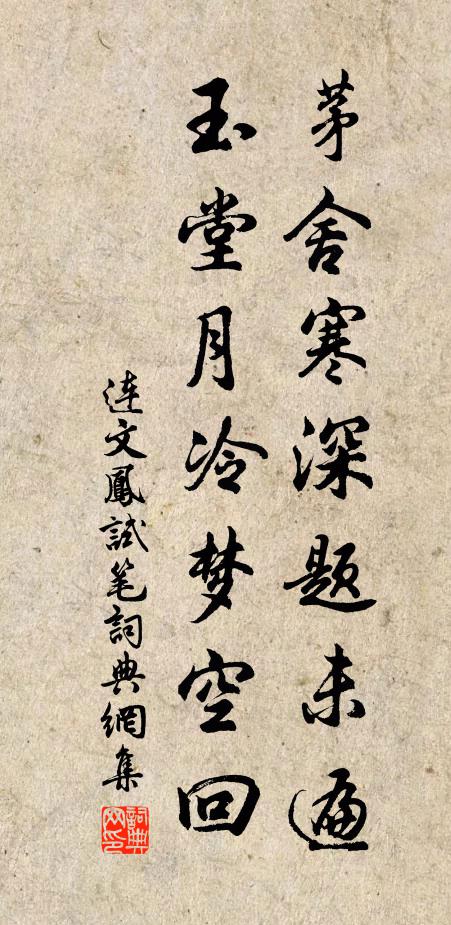 茅舍寒深题未遍
玉堂月冷梦空回
連文鳳試笔詞典網集
詞典网印